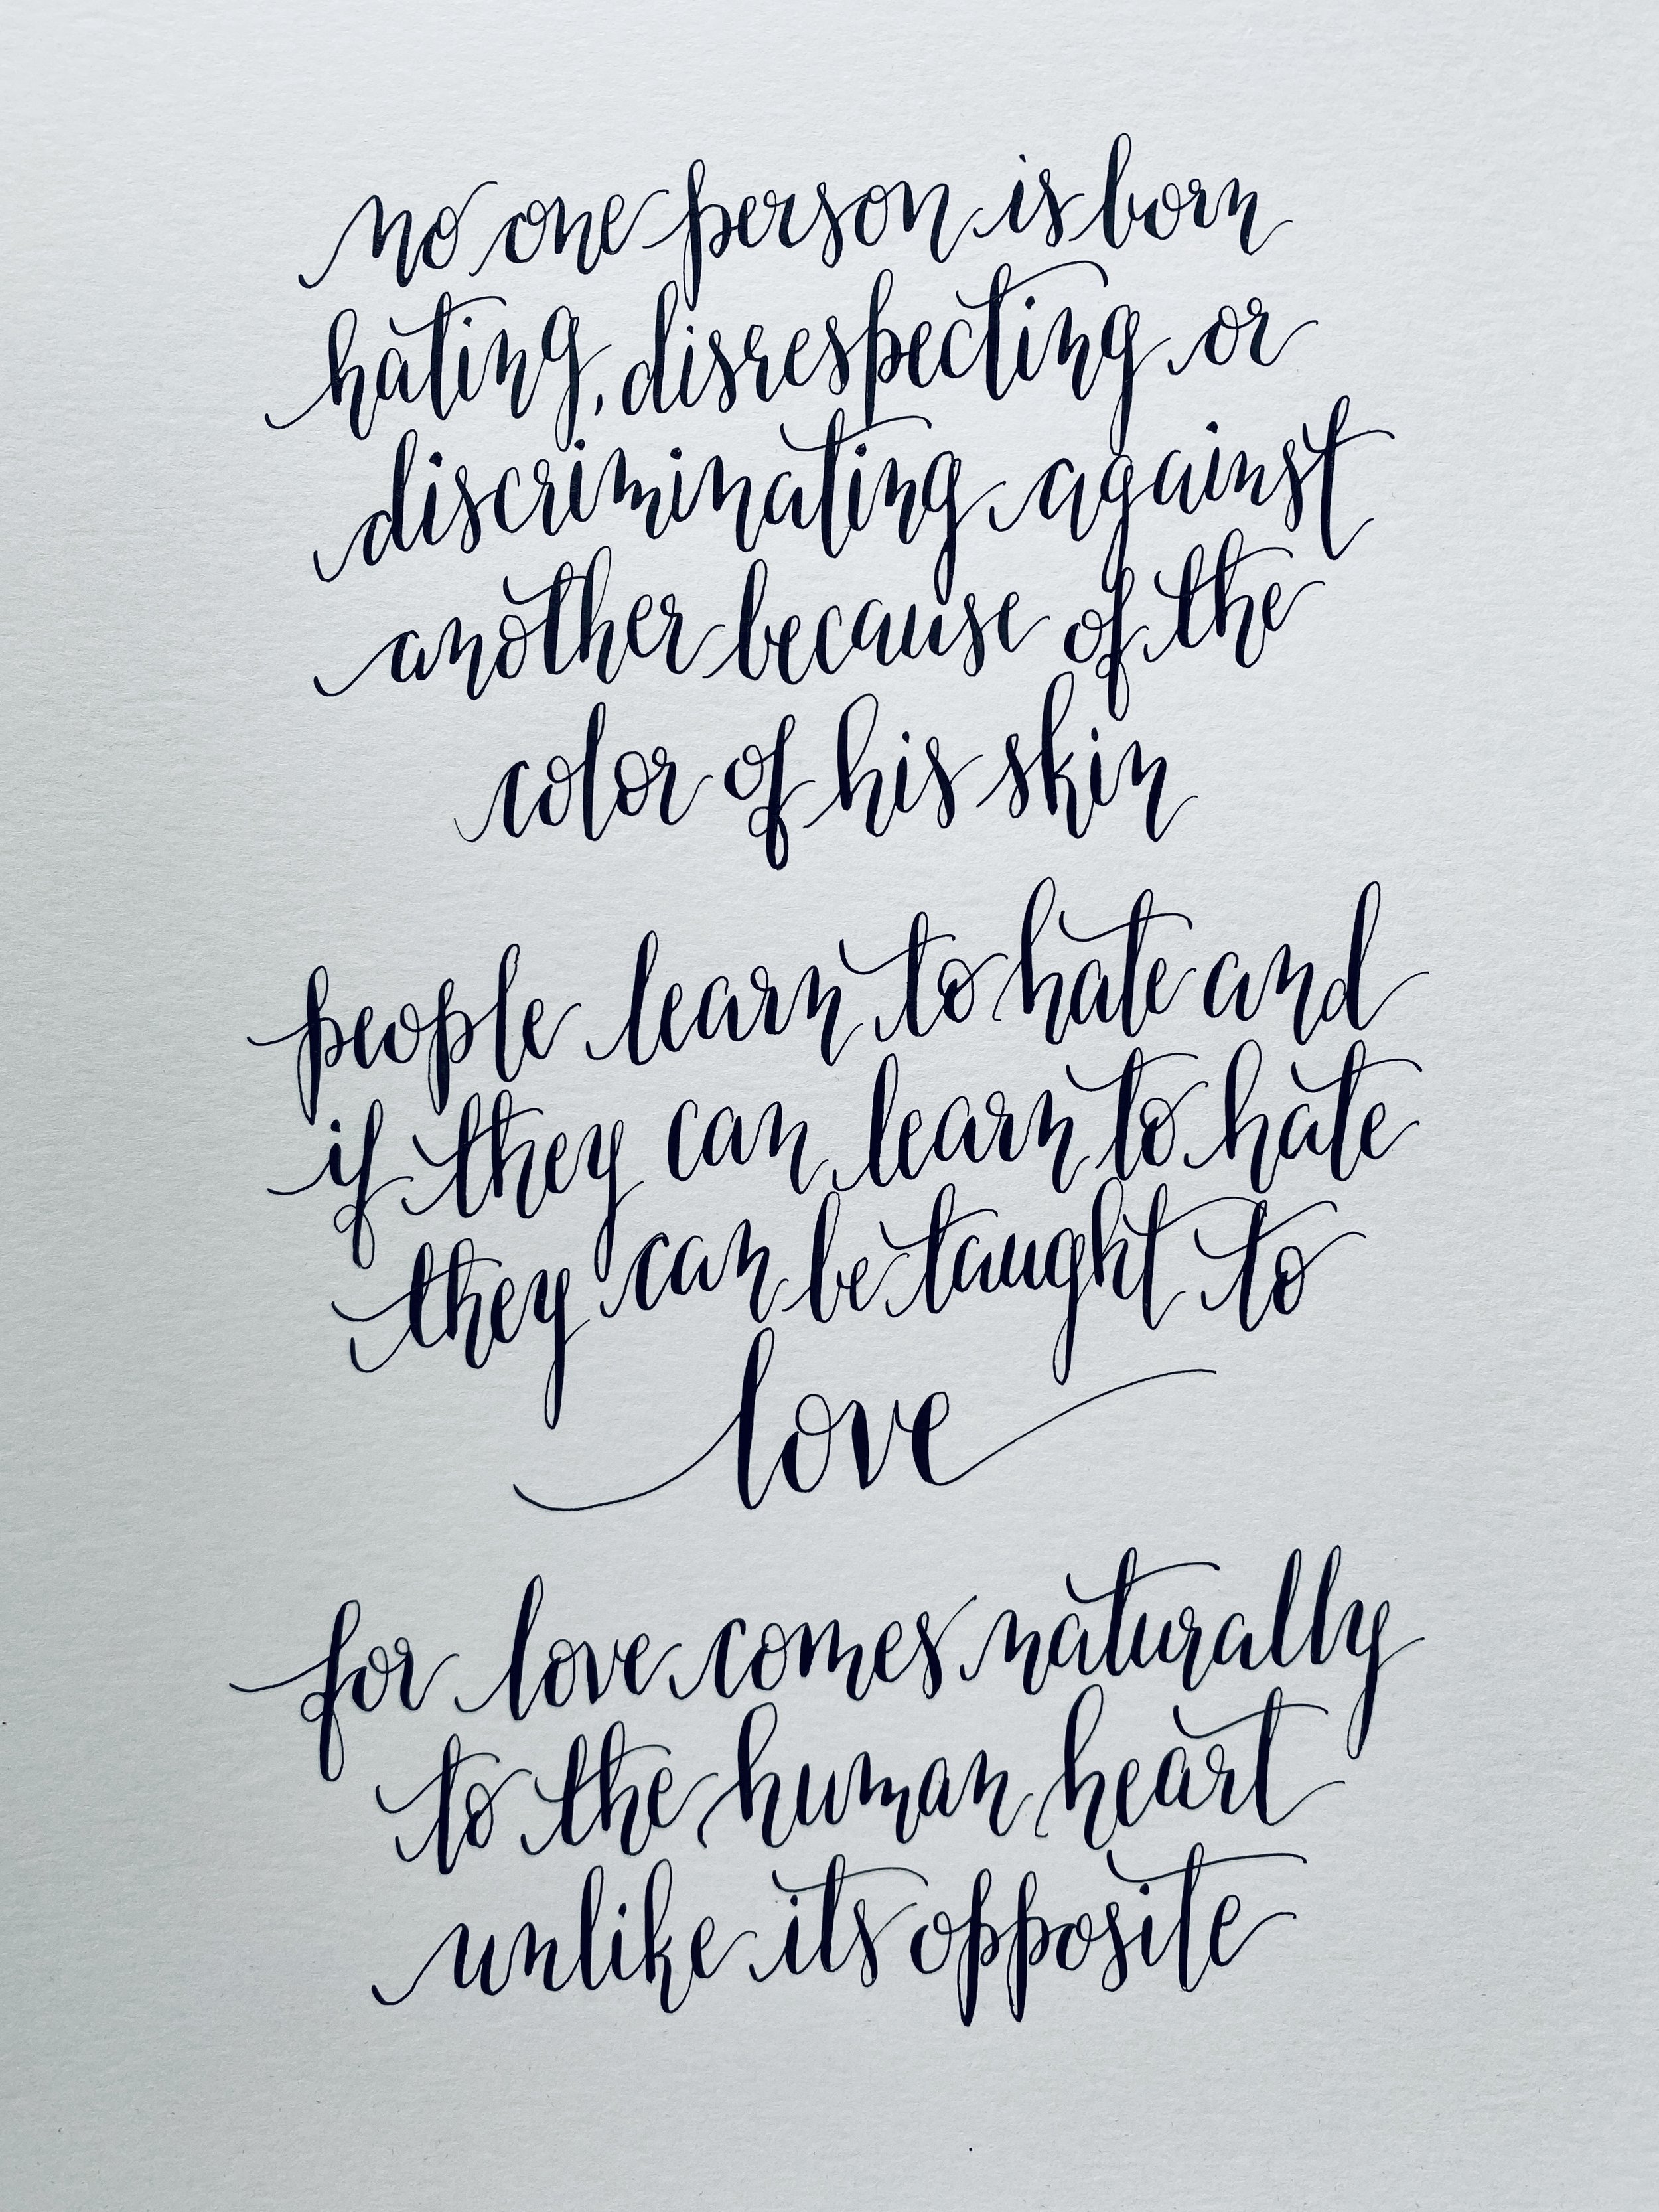 no one person is born
hating, disrespecting or
discriminating against
another because of the
color of his skin
people learn to hate and
if they can learn to hate
they can be taught to
love
for love comes naturally
to the human heart
unlike its opposite